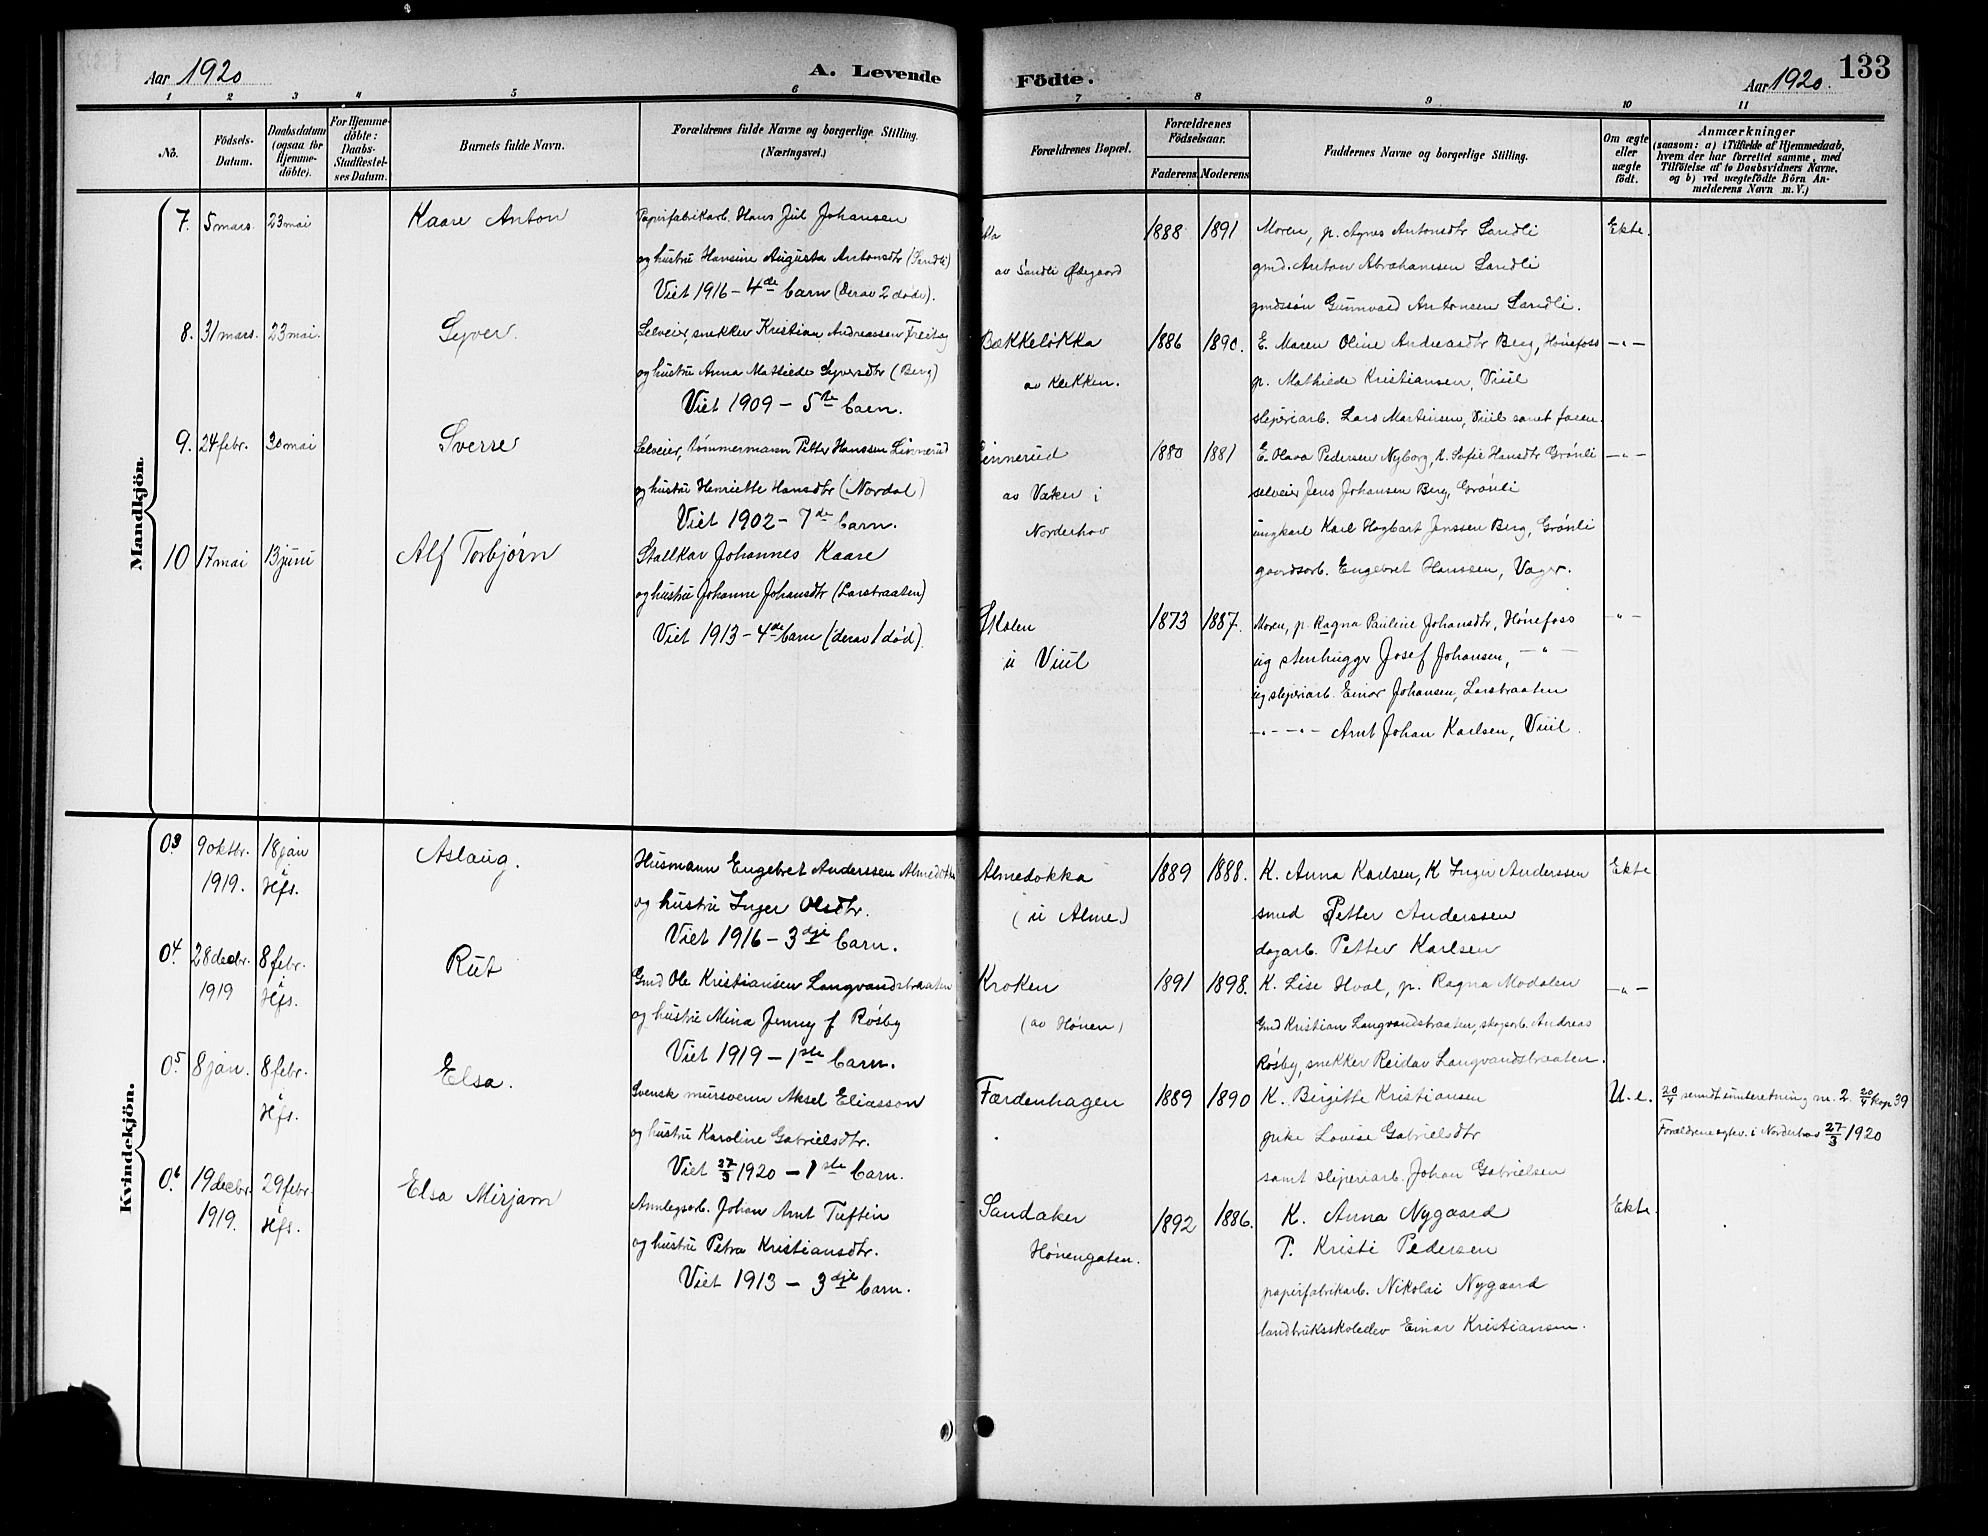 Aar 1920
A. Levende
Födte.
Aar 1920.
133
1 2 3 4 5 6
7 8 9 10 11
No.
Födsels-
Datum.
Daabsdatum
(ogsaa for
Hjemme-
döbte).
For Hjemme-
döbte:
Daabs-
Stadfæstel-
ses Datum.
Barnets fulde Navn.
Forældrenes fulde Navne og borgerlige Stilling.
(Næringsvei.)
Forældrenes Bopæl.
Forældrenes
Födselsaar.
Faderens
Moderens
Faddernes Navne og borgerlige Stilling.
Om ægte
eller
uægte
födt.
Anmærkninger
(saasom: a) i Tilfælde af Hjemmedaab,
hvem der har forrettet samme, med
Tilföielse af to Daabsvidners Navne,
og b) ved uægtefödte Börn An-
melderens Navn m. V.)
Mandkjön.
7. 5 mars. 23 mai Kaare Anton
Papirfabrikarb. Hans Jul Johansen
og hustru Hansine Augusta Antonsdtr (Sandli)
Viet 1916 - 4de barn (derav 2 døde).
av Sandli Ødegaard
1888 1891
Moren, p. Agnes Antonsdtr Sandli
gmd. Anton Abrahamsen Sandli
gmdssøn Gunnvald Antonsen Sandli.
Ekte.
8. 31 mars. 23 mai. Syver.
Selveier, snekker Kristian Andreassen
og hustru Anna Mathilde Syversdtr (Berg)
Viet 1909 - 5te barn.
Bækkeløkka
av Klekken.
1886 1890.
E. Maren Oline Andreasdtr Berg, Hønefoss
p. Mathilde Kristiansen, Viul
sliperiarb. Lars Martinsen, Viul samt faren.
-"-
9. 24 febr. 30 mai Sverre
Selveier, tømmermann Petter Hanssen Linnerud
og hustru Henriette Hansdtr (Nordal)
Viet 1902 - 7de barn.
Linnerud
av Vaker i
Norderhov
1880 1881
E. Olava Pedersen Nyborg, E. Sofie Hansdtr Grønli
selveier Jens Johansen Berg, Grønli
ungkarl Karl Hagbart Jenssen Berg, Grønli
gaardsarb. Engebret Hanssen, Vager.
-"-
10 17 mai 13 juni Alf Torbjørn
Stallkar Johannes Kaare
og hustru Johanne Johansdtr (Larsbraaten)
Viet 1913 - 4de barn (derav 1 død)
Skolen
u Viul
1873 1887.
Moren, p. Ragna Pauline Johansdtr, Hønefoss
ug stenhugger Josef Johansen, -"-
ug sliperiarb. Einar Johansen, Larsbraaten
-"- -"- Arnt Johan Karlsen, Viul.
-"-
Kvindekjön.
03 9 oktbr. 1919. 18 jan i Hfs. Aslaug.
Husmann Engebret Anderssen Almedokka
og hustru Inger Olsdtr.
Viet 1916 - 3dje barn.
Almedokka
(u Alme)
1889 1888.
K. Anna Karlsen, K Inger Anderssen
smed Petter Anderssen
dagarb. Petter Karlsen
Ekte
04. 28 decbr. 1919 8 febr. i Hfs. Rut
Gmd Ole Kristiansen Langvandsbraaten
og hustru Mina Jenny f Røsby
Viet 1919 - 1ste barn.
Kroken
(av Hønen)
1891 1898.
K. Lise Hval, p. Ragna Modalen
Gmd Kristian Langvandsbraaten, skogsarb. Andreas
Røsby, snekker Reidar Langvandsbraaten.
-"-
05. 8 jan. 8 febr. i Hfs. Elsa.
Svensk mursvenn Aksel Eliasson
og hustru Karoline Gabrielsdtr.
Viet 27/3 1920 - 1ste barn.
Færdenhagen
1889 1890
K. Birgitte Kristiansen
pike Lovise Gabrielsdtr
samt sliperiarb. Johan Gabrielsen
U. e.
20/4 sendt underretning nr. 2. 20/4 kop 39
Forældrene egtev. i Norderhov 27/3 1920
06. 19 decbr. 1919. 29 febr. i Hfs. Elsa Mirjam
Anlegsarb. Johan Arnt Tuftin
og hustru Petra Kristiansdtr.
Viet 1913 - 3dje barn.
Sandaker
Hønengaten.
1892 1886.
K. Anna Nygaard
P. Kristi Pedersen
papirfabrikarb. Nikolai Nygaard
landbruksskoleelev Einar Kristiansen.
Ekte.